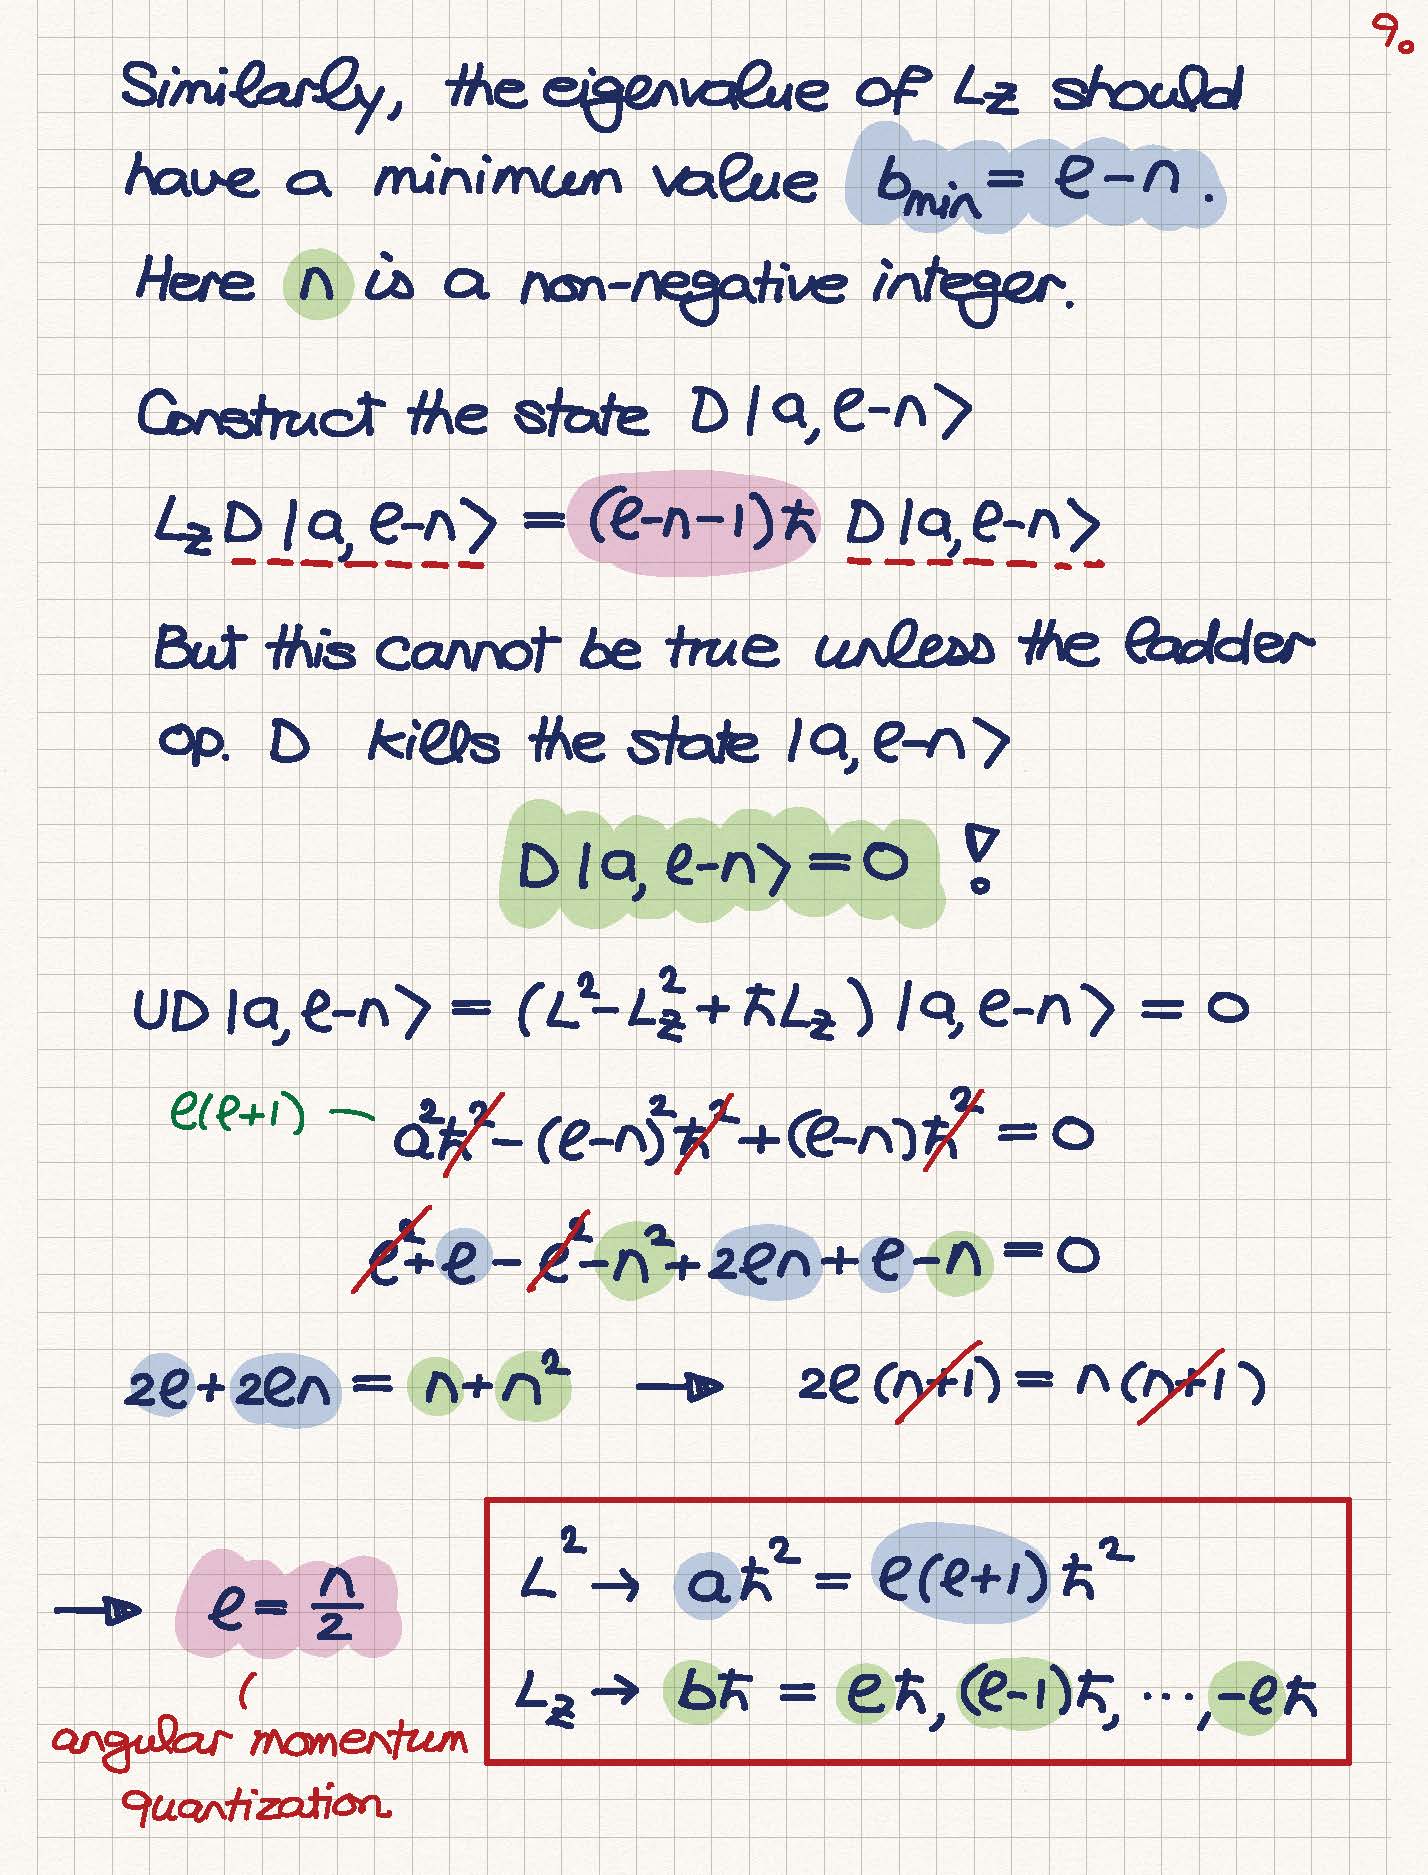 9.
Similarly, the eigenvalue of Lz should
have a minimum value b_min = ℓ-n.
Here n is a non-negative integer.
Construct the state D|a, ℓ-n>
Lz D|a, ℓ-n> = (ℓ-n-1)ħ D|a, ℓ-n>
But this cannot be true unless the ladder
op. D kills the state |a, ℓ-n>
D|a, ℓ-n> = 0 !
UD|a, ℓ-n> = (L² - Lz² + ħLz) |a, ℓ-n> = 0
ℓ(ℓ+1) — a²ħ² - (ℓ-n)²ħ² + (ℓ-n)ħ² = 0
ℓ² + ℓ - ℓ² - n² + 2ℓn + ℓ - n = 0
2ℓ + 2ℓn = n + n² → 2ℓ(n+1) = n(n+1)
→ ℓ = n/2
angular momentum
quantization
L² → aħ² = ℓ(ℓ+1)ħ²
Lz → bħ = ℓħ, (ℓ-1)ħ, ..., -ℓħ